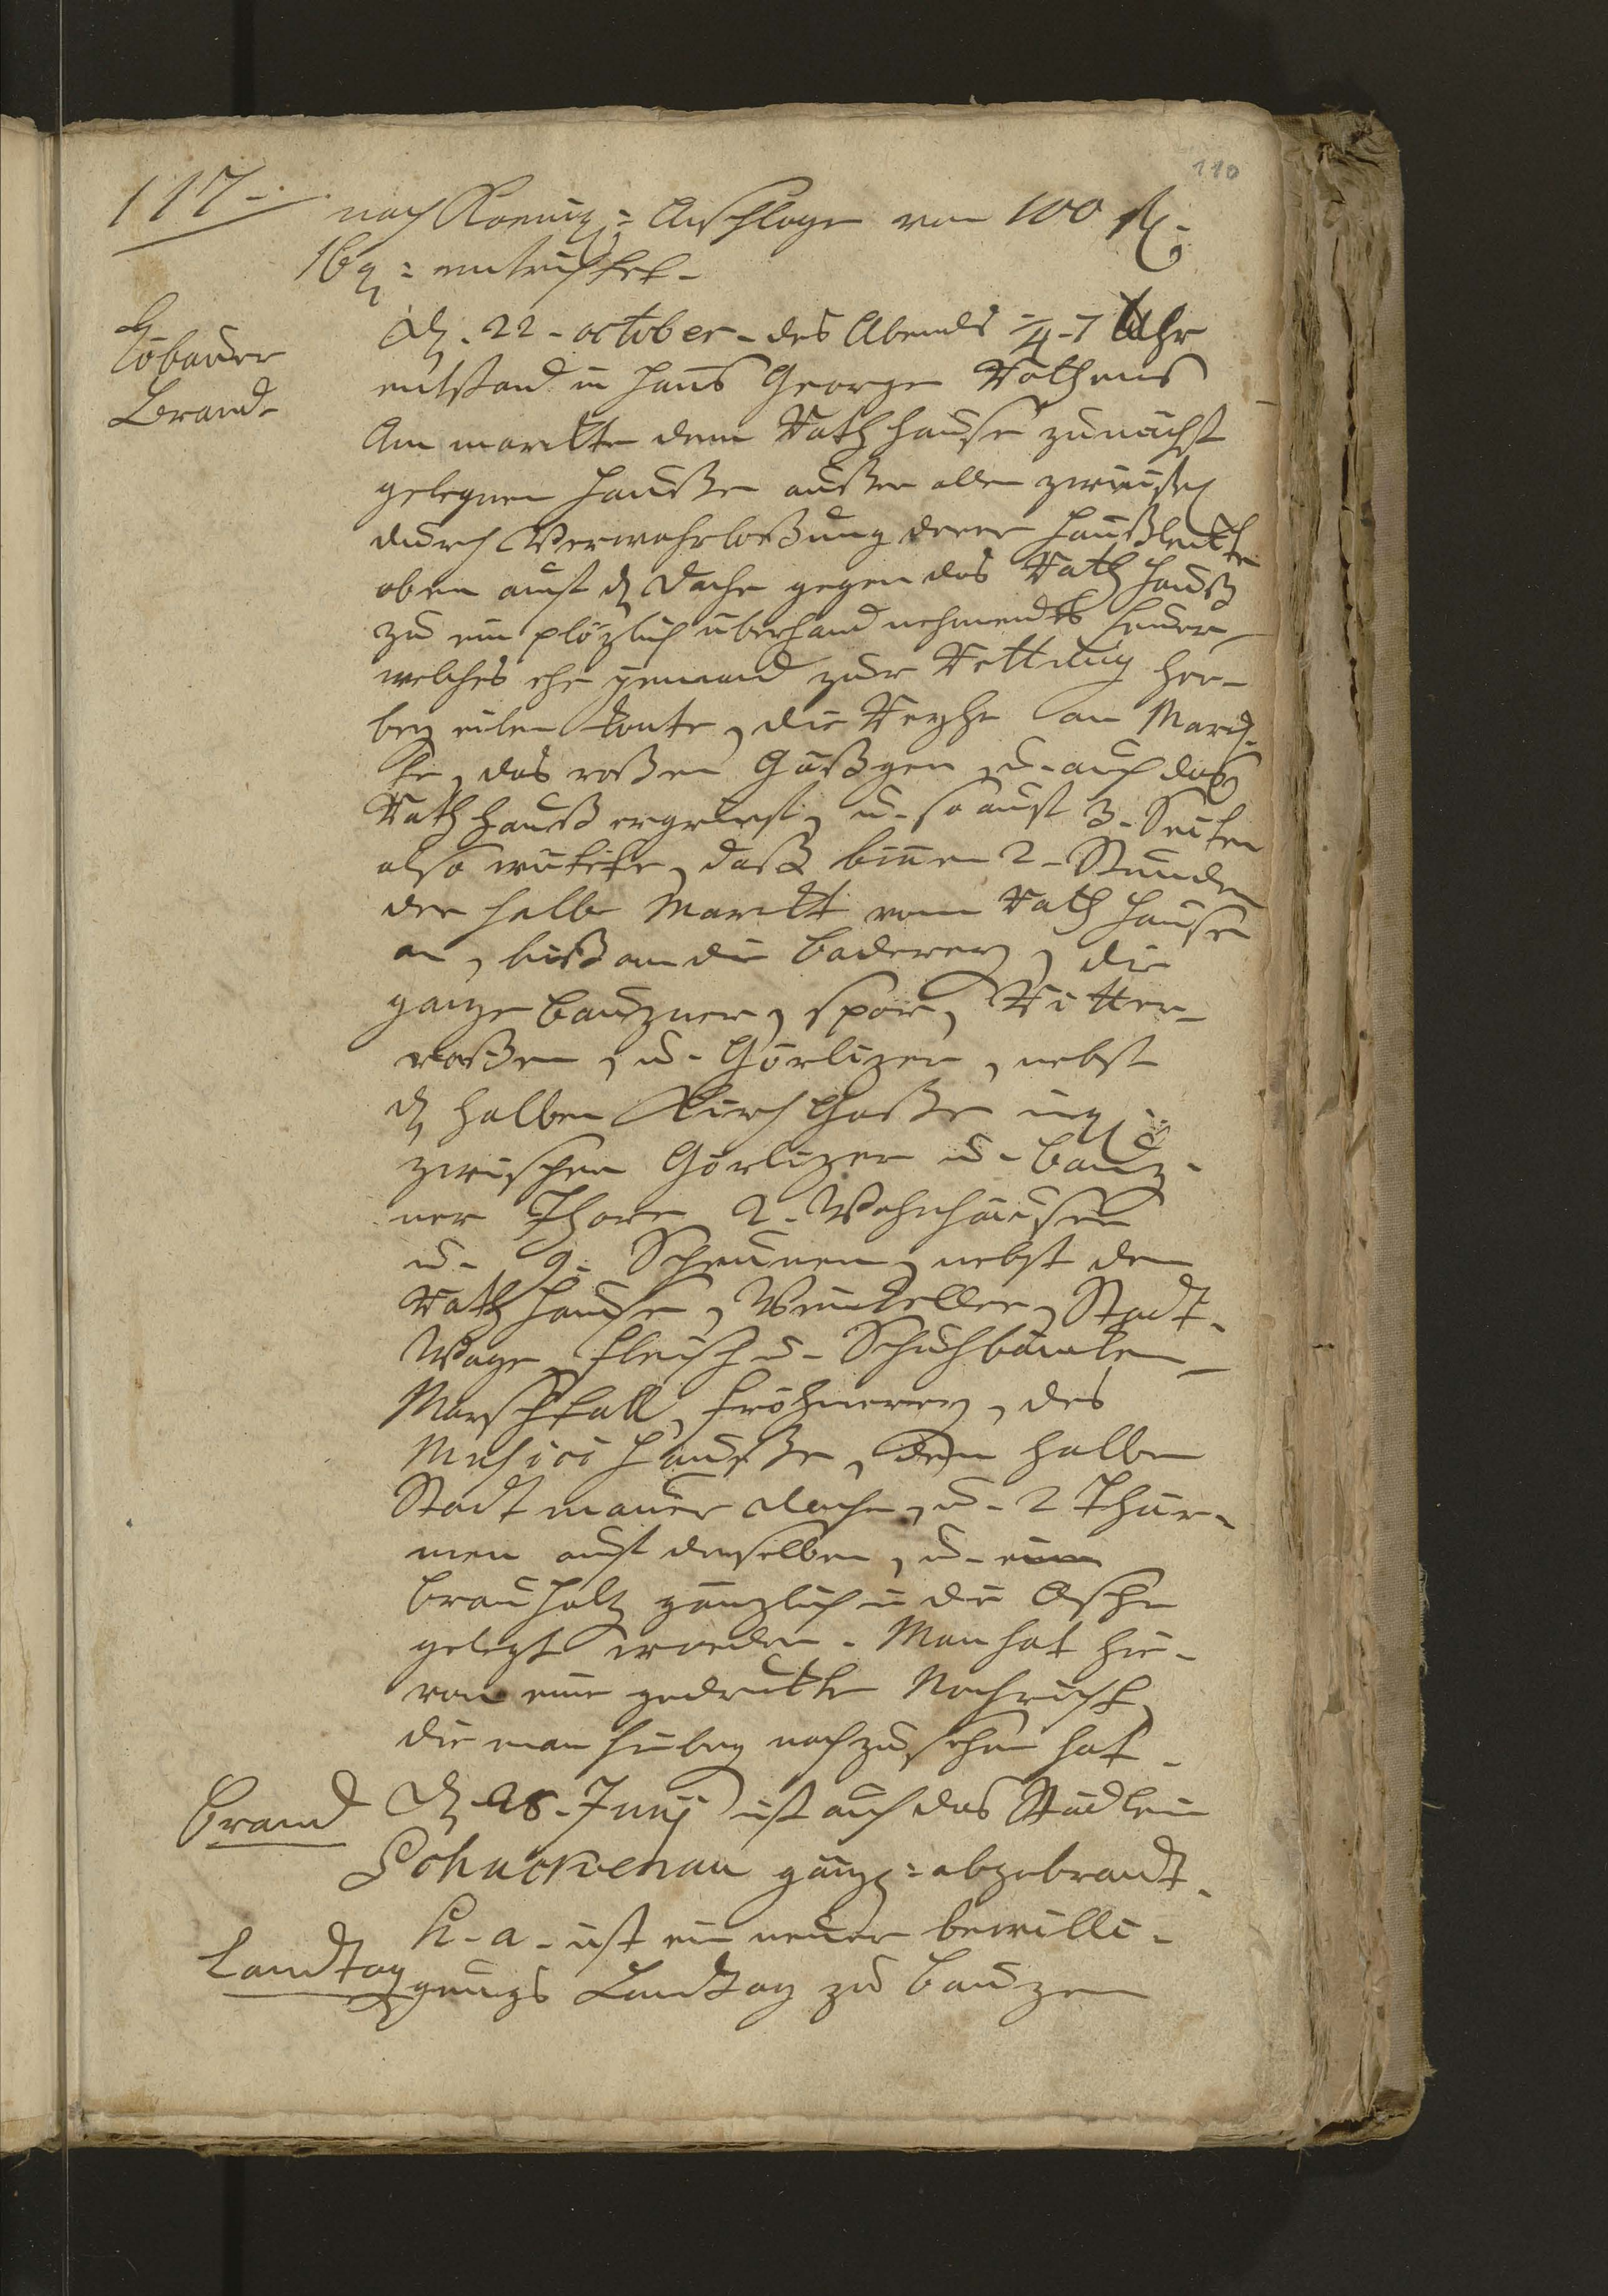 110
117.
nach Kreuz: Anschlage von 100 rthl.
16 g: entrichtet.
Löbauer
Brand.
D. 22. october. des Abends 4-7 Uhr
entstand in Hans George Rothens
Am marckte dem Rathhause zunächst
gelegnen Hauße außer allen zweifel
durch Verwahrloßung derer Haußleuthe
oben auf d Dache gegen das Rath Hauß
zu ein plözlich überhand nehmendes Feuer
welches ehe jemand zur Rettung her-
bey eilen konte, die Reyhe am Marck-
te, das roßen Gäßgen, u. auch das
Rathhauß ergrief, u. so auf 3. Seiten
also wütete, daß binnen 2. Stunden
der halbe Marckt vom Rath Hause
an, biß an die Baderey, die
ganze Bauzner, spor, Ritter-
roßen, u. Görlizer, nebst
d halben Kirch Gaße
zwischen Görlizer u. Bauz-
ner Thore 2. Wohnhäuser
u. 9. Scheunen, nebst dem
Rath Hause, Weinkeller, Stadt-
Wage, Fleisch u. Schuhbäncken
Marschstall, Fröhnerey, des
Musici Hauße, dem halben
Stadtmauer dache, u. 2 Thür-
men auf derselben, u. einem
Brauholz gänzlich in die Asche
gelegt worden. Man hat hie-
von eine gedruckte Nachricht,
die man hiebey nachzusehen hat.
Brand
D. 28. Junij ist auch das Städlein
Schuckenau gänz: abgebrandt.
Landtag
h. a. ist ein neuer bewilli-
gungs Landtag zu Bauzen